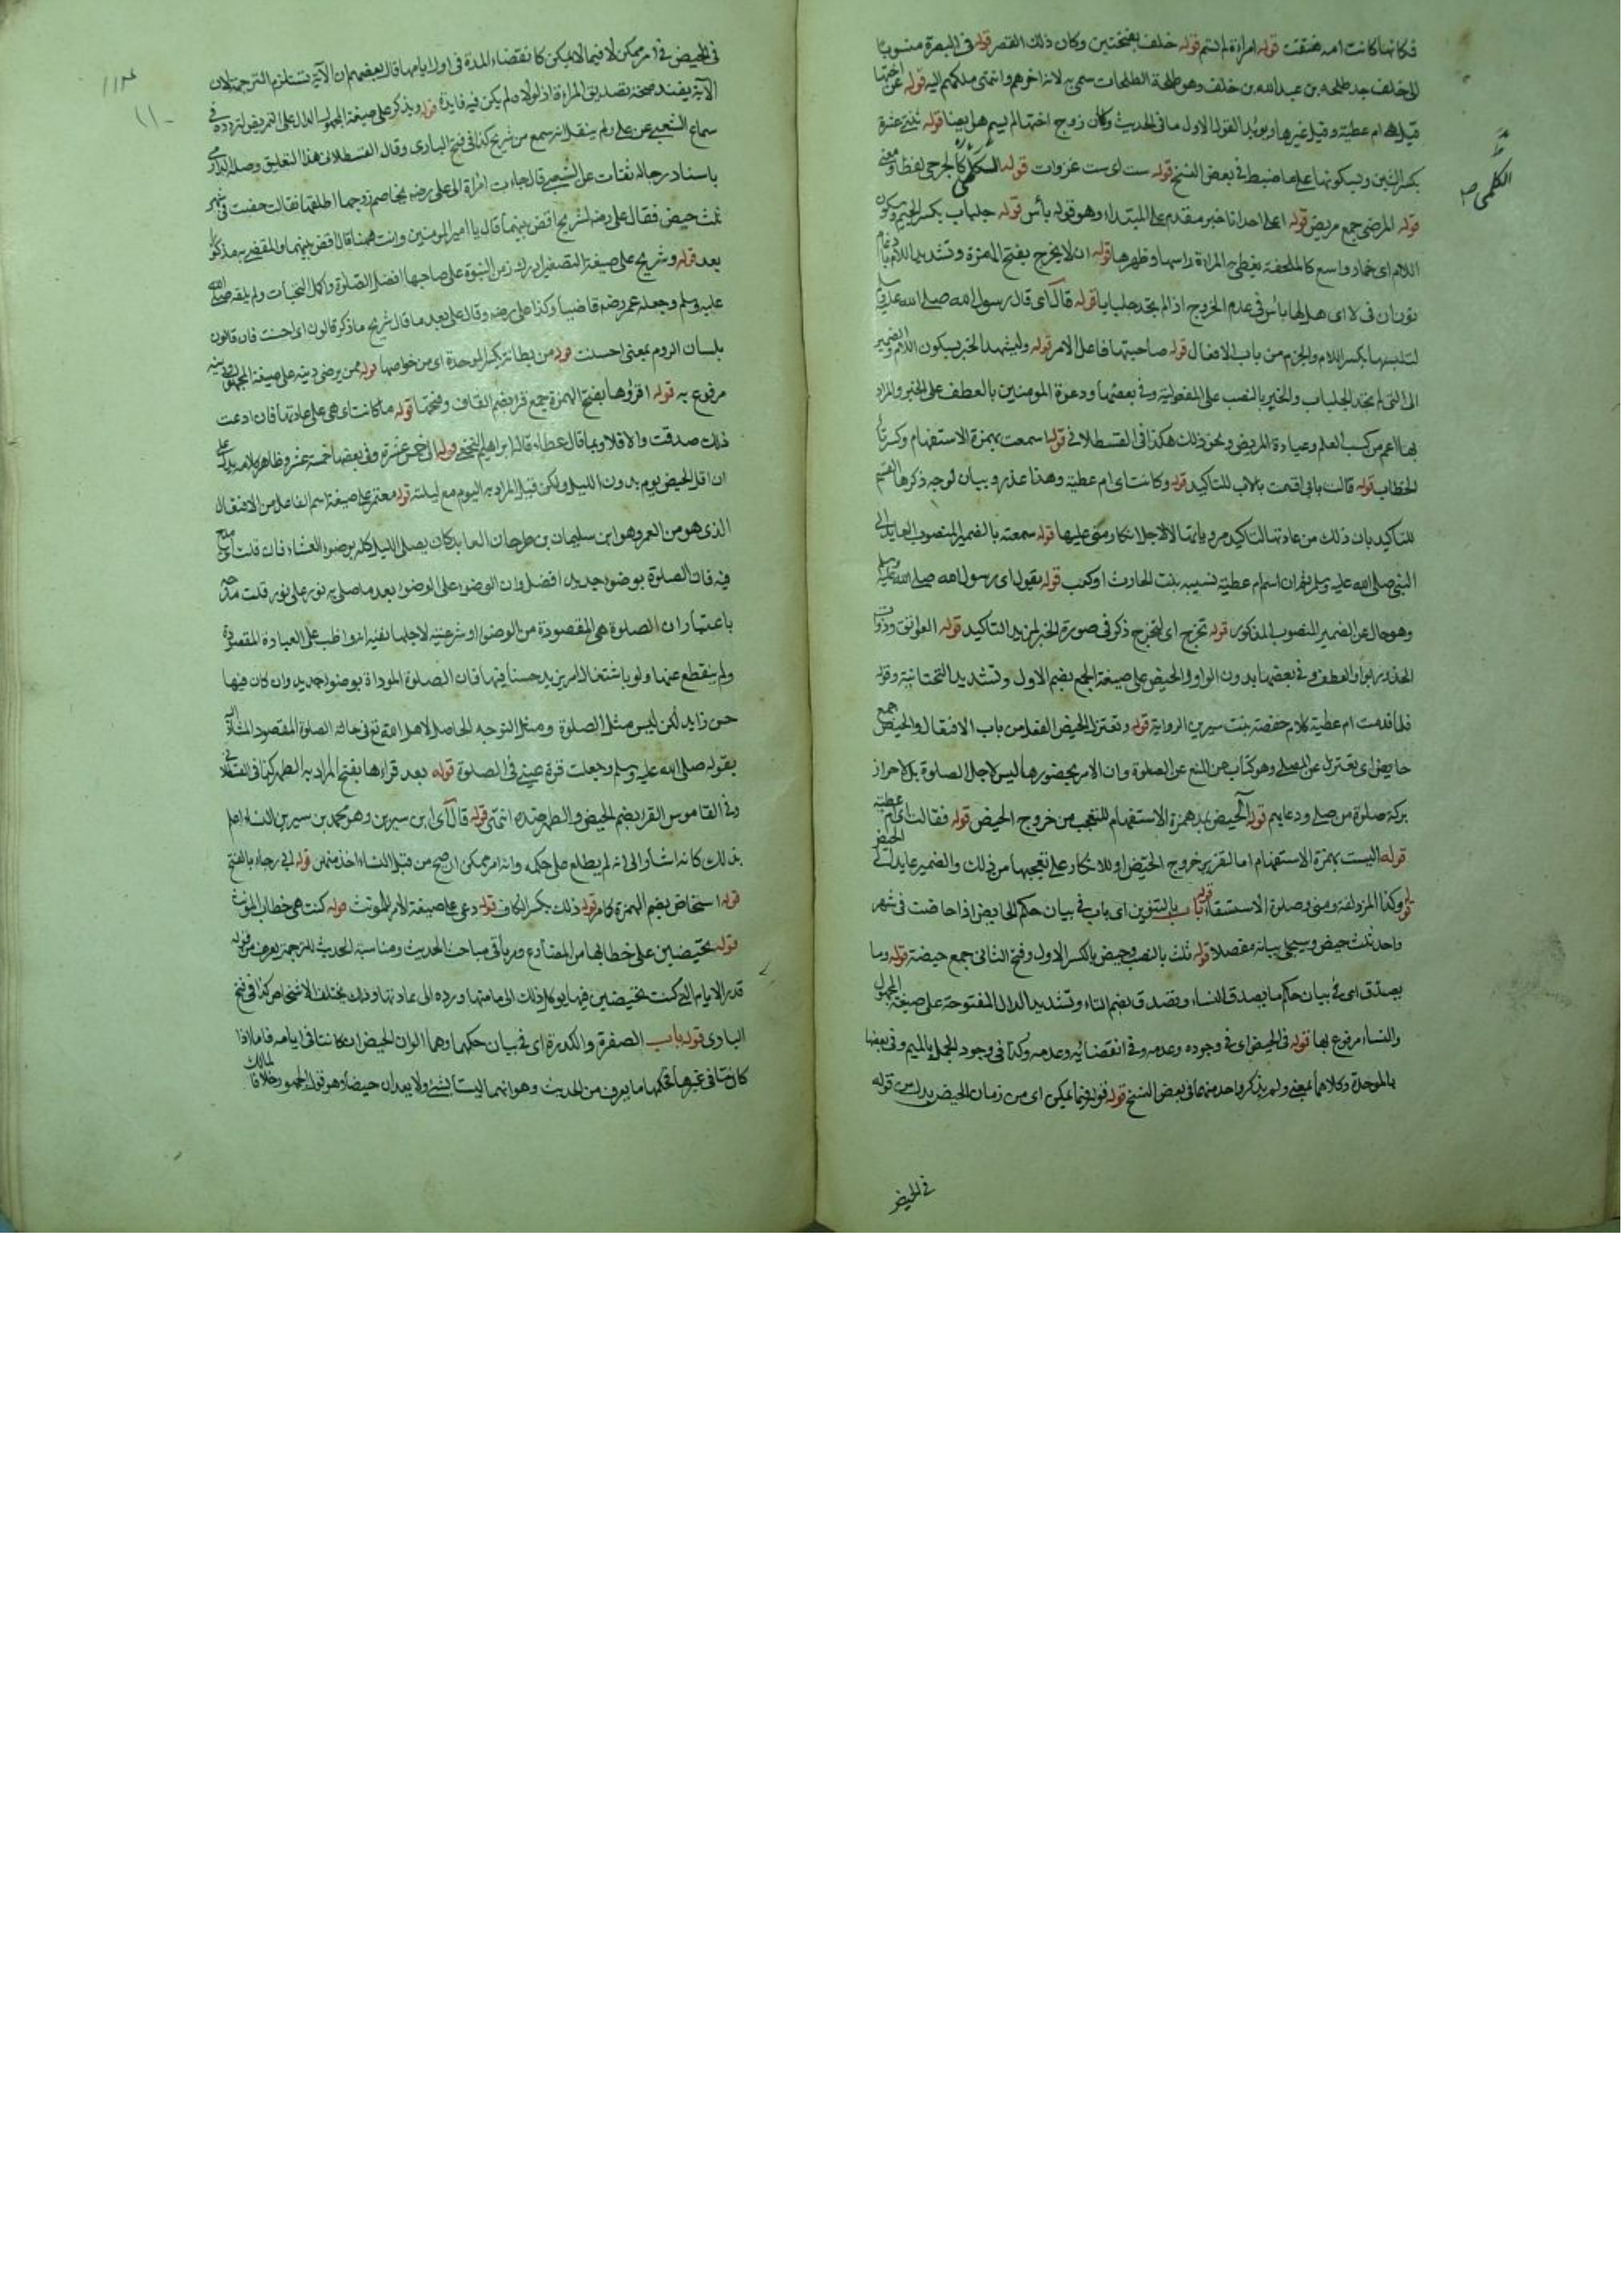 فكانها كانت امه فنقت قوله امراة لم تسم قوله خلف بفتحتين وكان ذلك القصر قوله فى البصرة منسوبا
الى خلف جد طلحة بن عبد الله بن خلف وهو طلحة الطلحات سمى به لانه اخرهم وانتهى قوله عن اختها
قيل هى ام عطية وقيل غيرها ويؤيد القول الاول ما فى الحديث وكان زوج اختها لم يسم هو ايضا قوله ثنتى عشرة
بكسر الشين وبسكونها على ما ضبط فى بعض النسخ قوله ست اى ست غزوات قوله الكلمى كالجرحى لفظا ومعنى
الكلمى صح
قوله المرضى جمع مريض قوله اعلى احدانا خبر مقدم على المبتداء وهو قوله بأس قوله جلباب بكسر الجيم وسكون
اللام اى خمار واسع كالملحفة يغطى به المراة راسها وظهرها قوله ان لا يخرج بفتح الهمزة وتشديد اللام بادغام
نون ان فى لا اى هل لها باس فى عدم الخروج اذا لم تجد جلبابا قوله قال اى قال رسول الله صلى الله عليه
لتلبسها بكسر اللام والجزم من باب الافعال قوله صاحبتها فاعل الامر قوله وليشهد الخير بسكون اللام والضمير
الى التى لم تجد الجلباب والخير بالنصب على المفعولية وفى بعضها ودعوة المومنين بالعطف على الخير والمراد
بها اعم من كسب العلم وعيادة المريض ونحو ذلك هكذا فى القسطلانى قوله اسمعت بهمزة الاستفهام وكسر تاء
الخطاب قوله قالت بابى اقسمت بالاب للتاكيد قوله وكانت اى ام عطية وهذا عذر وبيان لوجه ذكرها القسم
للتاكيد بان ذلك من عادتها لتاكيد مروياتها لا لاجل انكار منى عليها قوله سمعته بالضمير المنصوب العايد الى
النبى صلى الله عليه وسلم ثم ان اسم ام عطية نسيبه بنت الحارث او كعب قوله يقول اى رسول الله صلى الله عليه وسلم
وهو حال عن الضمير المنصوب المذكور قوله تخرج اى لتخرج ذكر فى صورة الخبر لمزيد التاكيد قوله العواتق وذوات
الخدور بواو العطف وفى بعضها بدون الواو والحيض على صيغة الجمع بضم الاول وتشديد التحتانية وقوله
فلما قدمت ام عطية كلام حفصة بنت سيرين الرواية قوله وتعتزل الحيض الفعل من باب الافتعال والحيض جمع
حايض اى يعتزلن عن المصلى وهو كناية عن المنع عن الصلوة وان الامر بحضورها ليس لاجل الصلوة بل لاحراز
بركة صلوة من صلى ودعايهم قوله آلحيض بمد همزة الاستفهام للتعجب من خروج الحيض قوله فقالت اى ام عطية
قوله اليست بهمزة الاستفهام اما لتقرير خروج الحيض او للانكار على تعجبها من ذلك والضمير عايد الى الحيض
قوله وكذا المزدلفة ومنى وصلوة الاستسقاء قوله باب بالتنوين اى باب فى بيان حكم الحايض اذا حاضت فى شهر
واحد ثلث حيض وسيجئ بيانه مفصلا قوله ثلث بالنصب وحيض بالكسر الاول وفتح الثانى جمع حيضة قوله وما
يصدق اى فى بيان حكم ما يصدق النساء ويصدق بضم التاء وتشديد الدال المفتوحة على صيغة المجهول
والنساء مرفوع بها قوله فى الحيض اى فى وجوده وعدمه وفى انقضائه وعدمه وكذا فى وجود الحمل بالميم وفى بعضها
بالموحدة وكلاهما بمعنى ولم يذكر واحد منهما فى بعض النسخ قوله فيما يمكن اى من زمان الحيض بدل من قوله
فى الحيض
١١٠
فى الحيض فى امر ممكن لا فيما لا يمكن كانقضاء المدة فى اول ايامها قال بعضهم ان الآية تستلزم الترجمة لان
الآية يفيد صحة تصديق المراة اذ لولاه لم يكن فيه فايدة قوله ويذكر على صيغة المجهول الدال على التمريض لتردده فى
سماع الشعبى عن على ولم ينقل انه سمع من شريح كذا فى فتح البارى وقال القسطلانى هذا التعليق وصله الدارمى
باسناد رجاله ثقات عن الشعبى قال جاءت امراة الى على رضه يخاصم زوجها طلقها فقالت حضت فى شهر
ثلث حيض فقال على رضه لشريح اقض بينهما قال يا امير المومنين وانت ههنا قال اقض بينهما والمقضى به مذكور
بعد قوله وشريح على صيغة المصغر ادرك زمن النبوة على صاحبها افضل الصلوة واكمل التحيات ولم يلقه صلى الله
عليه وسلم وجعله عمر رضه قاضيا وكذا على رضه وقال على بعد ما قال شريح ما ذكر قالون اى احسنت فان قالون
بلسان الروم بمعنى احسنت قوله من بطانة بكسر الموحدة اى من خواصها قوله ممن يرضى دينه على صيغة المجهول ودينه
مرفوع به قوله اقراؤها بفتح الهمزة جمع قرء بضم القاف وفتحها قوله ما كانت اى هى على عادتها فان ادعت
ذلك صدقت والا فلا وبما قال عطاء قال ابراهيم النخعى قوله الى خمس عشرة وفى بعضها خمسة عشر وظاهر كلامه يدل على
ان اقل الحيض يوم بدون الليل ولكن قيل المراد به اليوم مع ليلته قوله معتمر على صيغة اسم الفاعل من الافتعال
الذى هو من العمر وهو ابن سليمان بن طرخان العابد كان يصلى الليل كله بوضوء العشاء فان قلت اى مدح
فيه فان الصلوة بوضوء جديد افضل وان الوضوء على الوضوء بعد ما صلى به نور على نور قلت مدحه
باعتبار ان الصلوة هى المقصودة من الوضوء او شرعيته لاجلها ففيه انه واظب على العبادة المقصودة
ولم ينقطع عنها ولو باشتغال امر يزيد حسنا فيها فان الصلوة الموداة بوضوء جديد وان كان فيها
حسن زايد لكن ليس مثل الصلوة ومثل التوجه الحاصل لاهل الله تع فى حالة الصلوة المقصود المشار اليه
بقوله صلى الله عليه وسلم وجعلت قرة عينى فى الصلوة قوله بعد قراءها بفتح المراد به الطهر كما فى القسطلانى
وفى القاموس القرء بضم الحيض والطهر ضده انتهى قوله قال اى ابن سيرين وهو محمد بن سيرين النساء اعلم
بذلك كانه اشار الى انه لم يطلع على حكمه وانه امر ممكن ان صح من قبل النساء اخذ منهن قوله ابى رجاء بالفتح
قوله استحاض بضم الهمزة كما مر قوله ذلك بكسر الكاف قوله دعى على صيغة الامر للمونث قوله كنت هى خطاب للمونث
قوله تحيضين على خطابها من المضارع ومر باقى مباحث الحديث ومناسبة الحديث للترجمة يعرف من قوله
قدر الايام التى كنت تحيضين فيها يوكل ذلك الى امانتها ورده الى عادتها وذلك يختلف لاشخاص كذا فى فتح
البارى قوله باب الصفرة والكدرة اى فى بيان حكمهما وهما الوان الحيض ان كانتا فى ايامه فاما اذا
كانتا فى غيرها فحكمهما ما يعرف من الحديث وهو انهما ليستا بشئ ولا يعدان حيضا وهو قول الجمهور خلافا لمالك